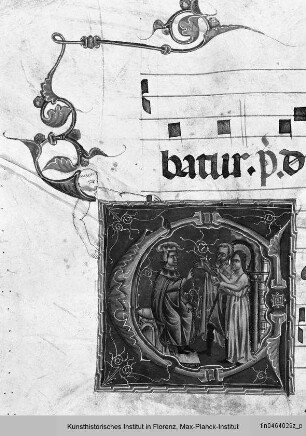 batur. p. d
Kunsthistorisches Institut in Florenz, Max-Planck-Institut